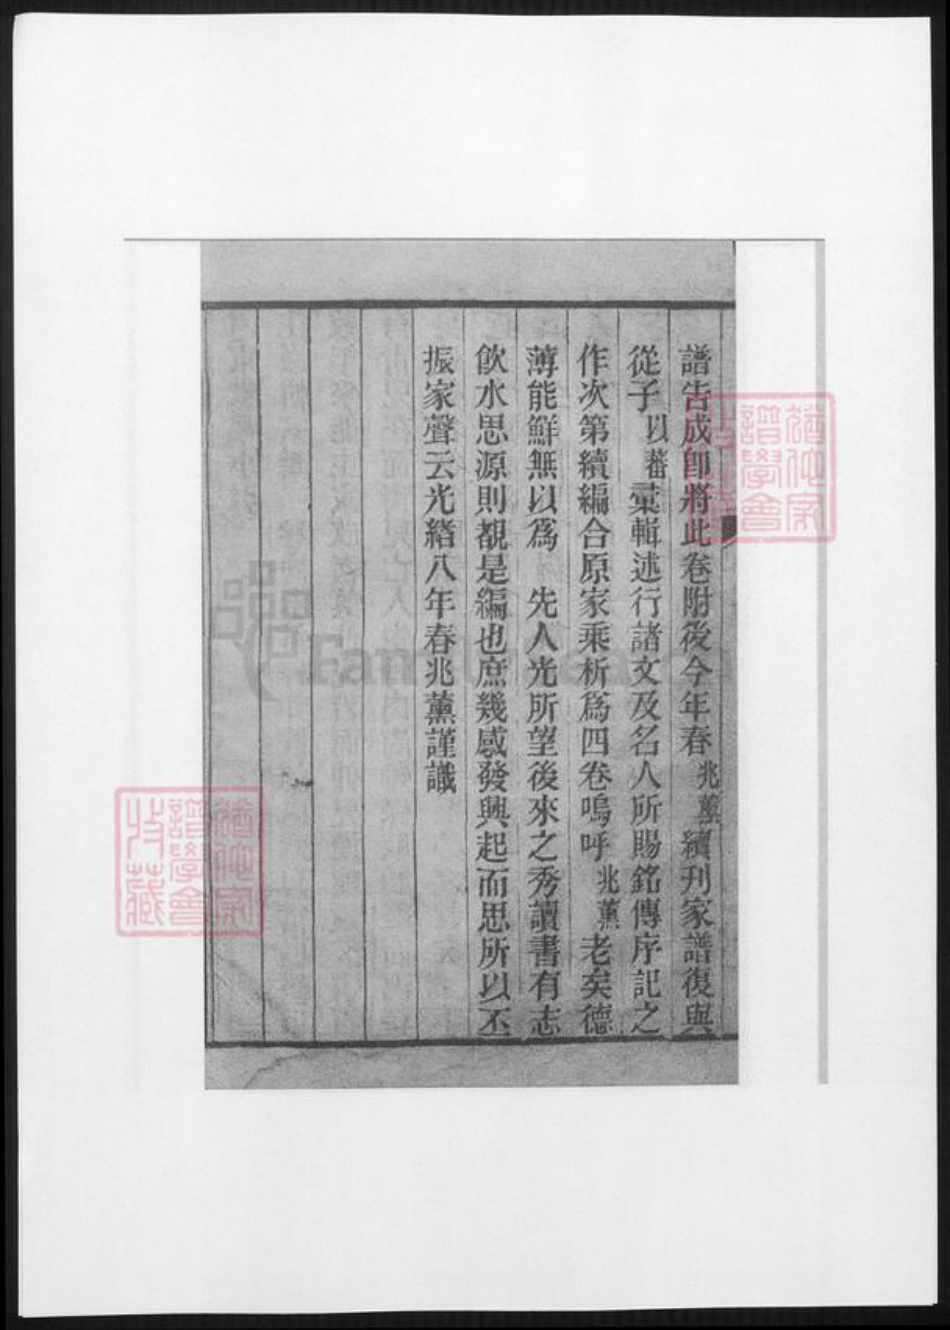 譜告成卽將此卷附後今年春兆薰續刊家譜復與
從子以蕃彙輯述行諸文及名人所賜銘傳序記之
作次第續編合原家乘析爲四卷嗚呼兆薰老矣德
薄能鮮無以爲 先人光所望後來之秀讀書有志
飮水思源則覩是編也庶幾感發興起而思所以丕
振家聲云光緒八年春兆薰謹識